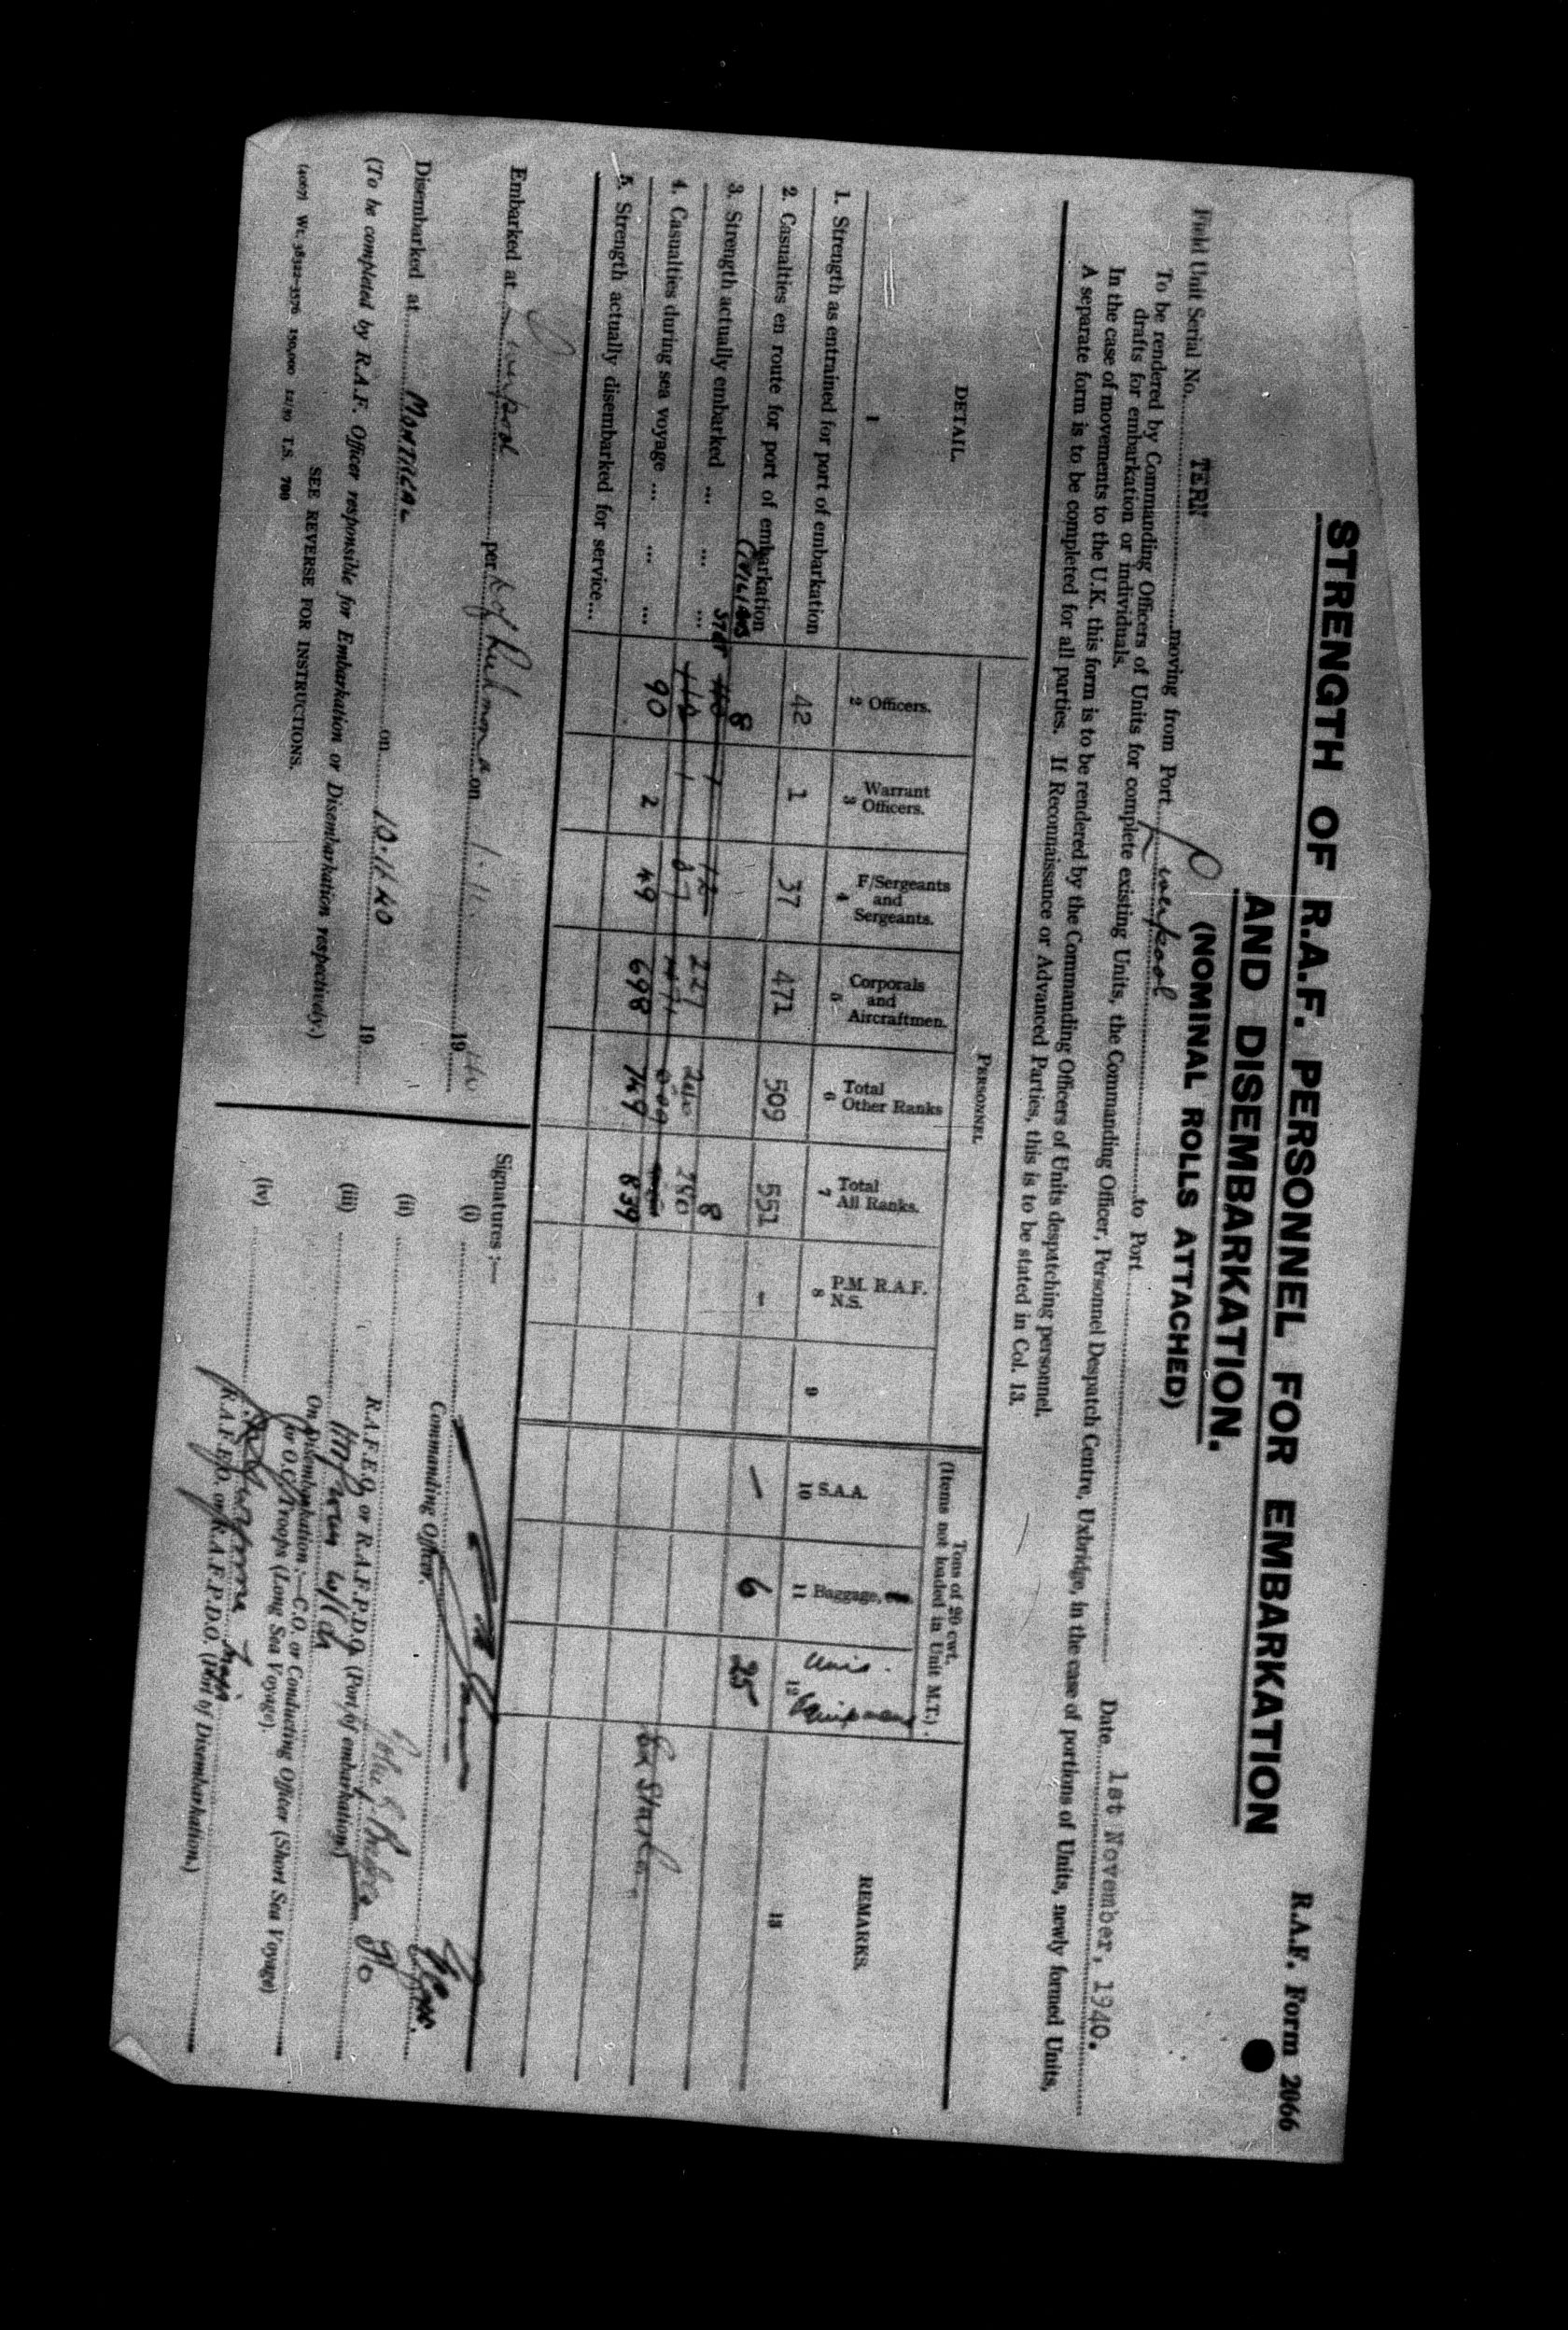 R.A.F. Form 2066
STRENGTH OF R.A.F. PERSONNEL FOR EMBARKATION
AND DISEMBARKATION.
(NOMINAL ROLLS ATTACHED)
Field Unit Serial No. TERN moving from Port Liverpool to Port Date 1st November, 1940.
To be rendered by Commanding Officers of Units for complete existing Units, the Commanding Officer, Personnel Despatch Centre, Uxbridge, in the case of portions of Units, newly formed Units,
drafts for embarkation or individuals.
In the case of movements to the U.K. this form is to be rendered by the Commanding Officers of Units despatching personnel.
A separate form is to be completed for all parties. If Reconnaissance or Advanced Parties, this is to be stated in Col. 13.
PERSONNEL
Tons of 20 cwt.
(Items not loaded in Unit M.T.)
DETAIL. Officers. Warrant Officers. F/Sergeants and Sergeants. Corporals and Aircraftmen. Total Other Ranks Total All Ranks. P.M. R.A.F. N.S. S.A.A. Baggage. Equipment REMARKS.
1 2 3 4 5 6 7 8 9 10 11 12 13
1. Strength as entrained for port of embarkation 42 1 37 471 509 551 - — 6 25
2. Casualties en route for port of embarkation
CIVILIANS 8 8
3. Strength actually embarked ... ... ... 1 12 227 240 280
4. Casualties during sea voyage ... ... ... 1 37 471 509
90 2 49 698 749 839
5. Strength actually disembarked for service ...
Embarked at Liverpool per D of Richmond on 1.11. 1940
Disembarked at MONTREAL on 10.11.40 19
(To be completed by R.A.F. Officer responsible for Embarkation or Disembarkation respectively.)
SEE REVERSE FOR INSTRUCTIONS.
(4067) Wt. 38322—3576 150,000 12/39 T.S. 700
Signatures :—
(i)
Commanding Officer.
(ii)
R.A.F.E.O. or R.A.F.P.D.O. (Port of embarkation.)
(iii)
On Disembarkation :—C.O. or Conducting Officer (Short Sea Voyage)
(or O.C. Troops (Long Sea Voyage).
(iv)
R.A.F.E.O. or R.A.F.P.D.O. (Port of Disembarkation.)